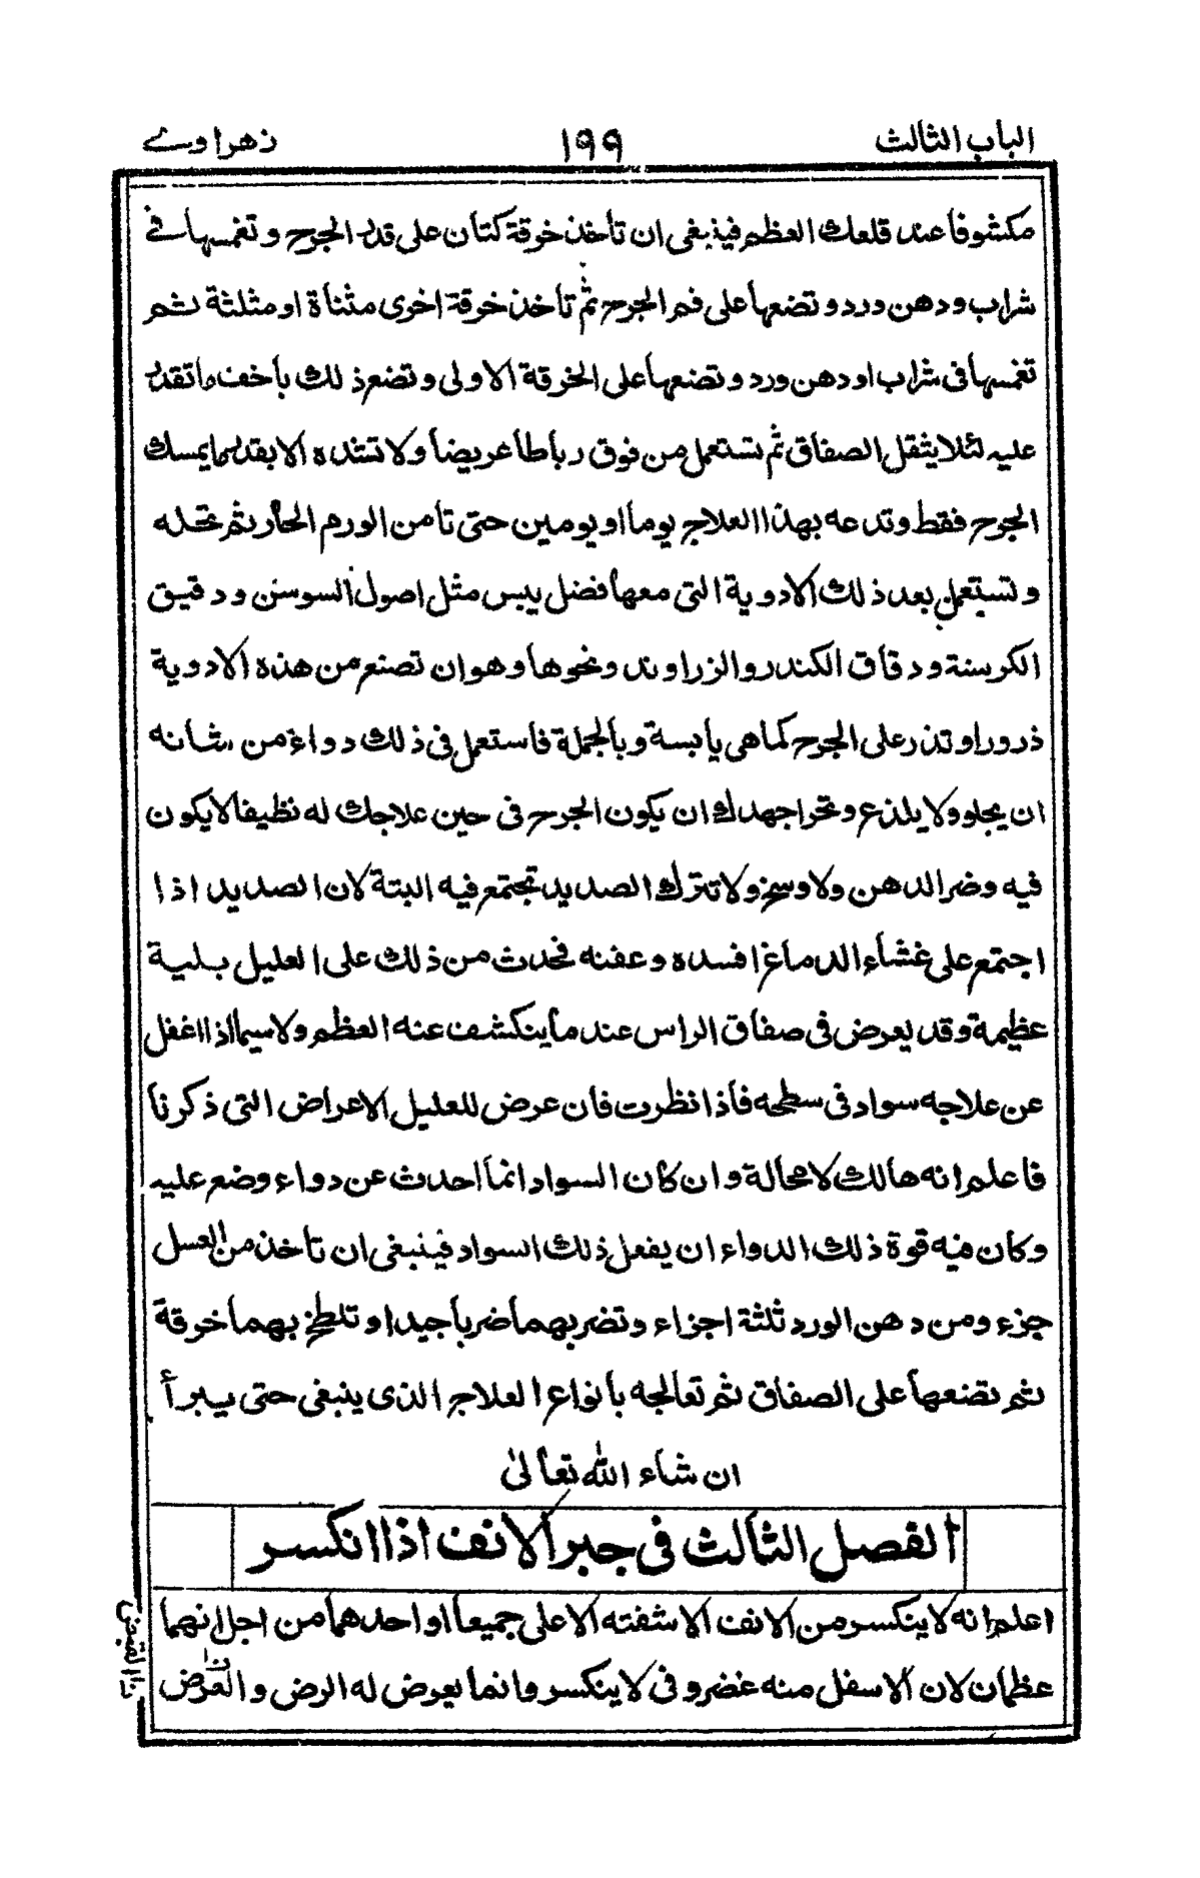 الباب الثالث ١٩٩ زهراوے
مكشوفا عند قلعك العظم فينبغى ان تأخذ خرقة كتان على قدر الجرح و تغمسها فے
شراب و دهن ورد و تضعها على فم الجرح ثم تأخذ خرقة اخرى مثناة او مثلثة ثم
تغمسها فى شراب او دهن ورد و تضعها على الخرقة الاولى و تضع ذلك بأخف ما تقدر
عليه لئلا يثقل الصفاق ثم تستعمل من فوق رباطا عريضا ولا تشده الا بقدر ما يمسك
الجرح فقط و تدعه بهذا العلاج يوما او يومين حتى تا من الورم الحار ثم تحله
و تستعمل بعد ذلك الادوية التى معها فضل يبس مثل اصول السوسن و دقيق
الكرسنة و دقاق الكندر والزراوند و نحوها و هو ان تصنع من هذه الادوية
ذرورا و تذر على الجرح كما هى يابسة و بالجملة فاستعمل فى ذلك دواء من شانه
ان يجلو ولا يلذع و تحرا جهدك ان يكون الجرح فى حين علاجك له نظيفا لا يكون
فيه وضر الدهن ولا وسخ ولا تترك الصديد تجتمع فيه البتة لان الصديد اذا
اجتمع على غشاء الدماغ افسده و عفنه فحدث من ذلك على العليل بلية
عظيمة و قد يعرض فى صفاق الراس عند ما ينكشف عنه العظم ولا سيما اذا اغفل
عن علاجه سواد فى سطحه فأذا نظرت فان عرض للعليل الاعراض التى ذكرنا
فاعلم انه هالك لا محالة و ان كان السواد انما احدث عن دواء وضع عليه
و كان فيه قوة ذلك الدواء ان يفعل ذلك السواد فينبغى ان تاخذ من العسل
جزء و من دهن الورد ثلثة اجزاء و تضربهما ضربا جيدا و تلطخ بهما خرقة
ثم تضعها على الصفاق ثم تعالجه بأنواع العلاج الذى ينبغى حتى يبرأ
ان شاء الله تعالىٰ
الفصل الثالث فى جبر الانف اذا انكسر
اعلم انه لا ينكسر من الانف الا شفته الاعلى جميعا او احدهما من اجل انهما
عظمان لان الاسفل منه غضروفى لا ينكسر و انما يعرض له الرض و العرض